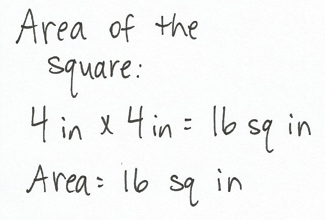 Area of the
square:
4 in x 4 in = 16 sq in
Area = 16 sq in